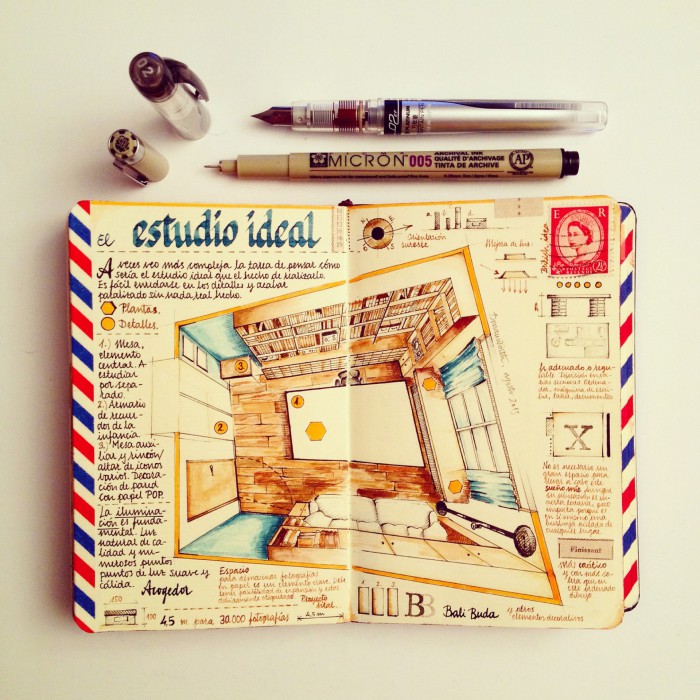 02
02
MICRON 005
ARCHIVAL INK
QUALITÉ D'ARCHIVAGE
TINTA DE ARCHIVO
AP
El estudio ideal
A veces veo más compleja la tarea de pensar cómo
sería el estudio ideal que el hecho de realizarlo.
Es fácil enredarse en los detalles y acabar
paralizado sin nada real hecho.
Plantas.
Detalles.
1.) Mesa,
elemento
central. A
estudiar
por sepa-
rado.
2.) Armario
de recuer-
dos de la
infancia.
3.) Mesa auxi-
liar y rincón
altar de iconos
varios. Decora-
ción de pared
con papel POP.
La ilumina-
ción es funda-
mental. Luz
natural de ca-
lidad y nu-
merosos puntos
puntos de luz suave y
cálida.
Acogedor
Espacio
para almacenar fotografías
en papel es un elemento clave. Debe
Proyecto
vital.
150
100
4,5 m para 30.000 fotografías
4,5 m
1
2
3
Orientación
sureste
a
b
Mejora de luz.
E R
agosto 2013
X
No es necesario un
gran espacio para
llevar a cabo este
sueño mío. Aunque
Finissant
Más caótico
y con más co-
lores que en
este ordenado
dibujo
1 2 3
BB
Bali Buda
y otros
elementos decorativos